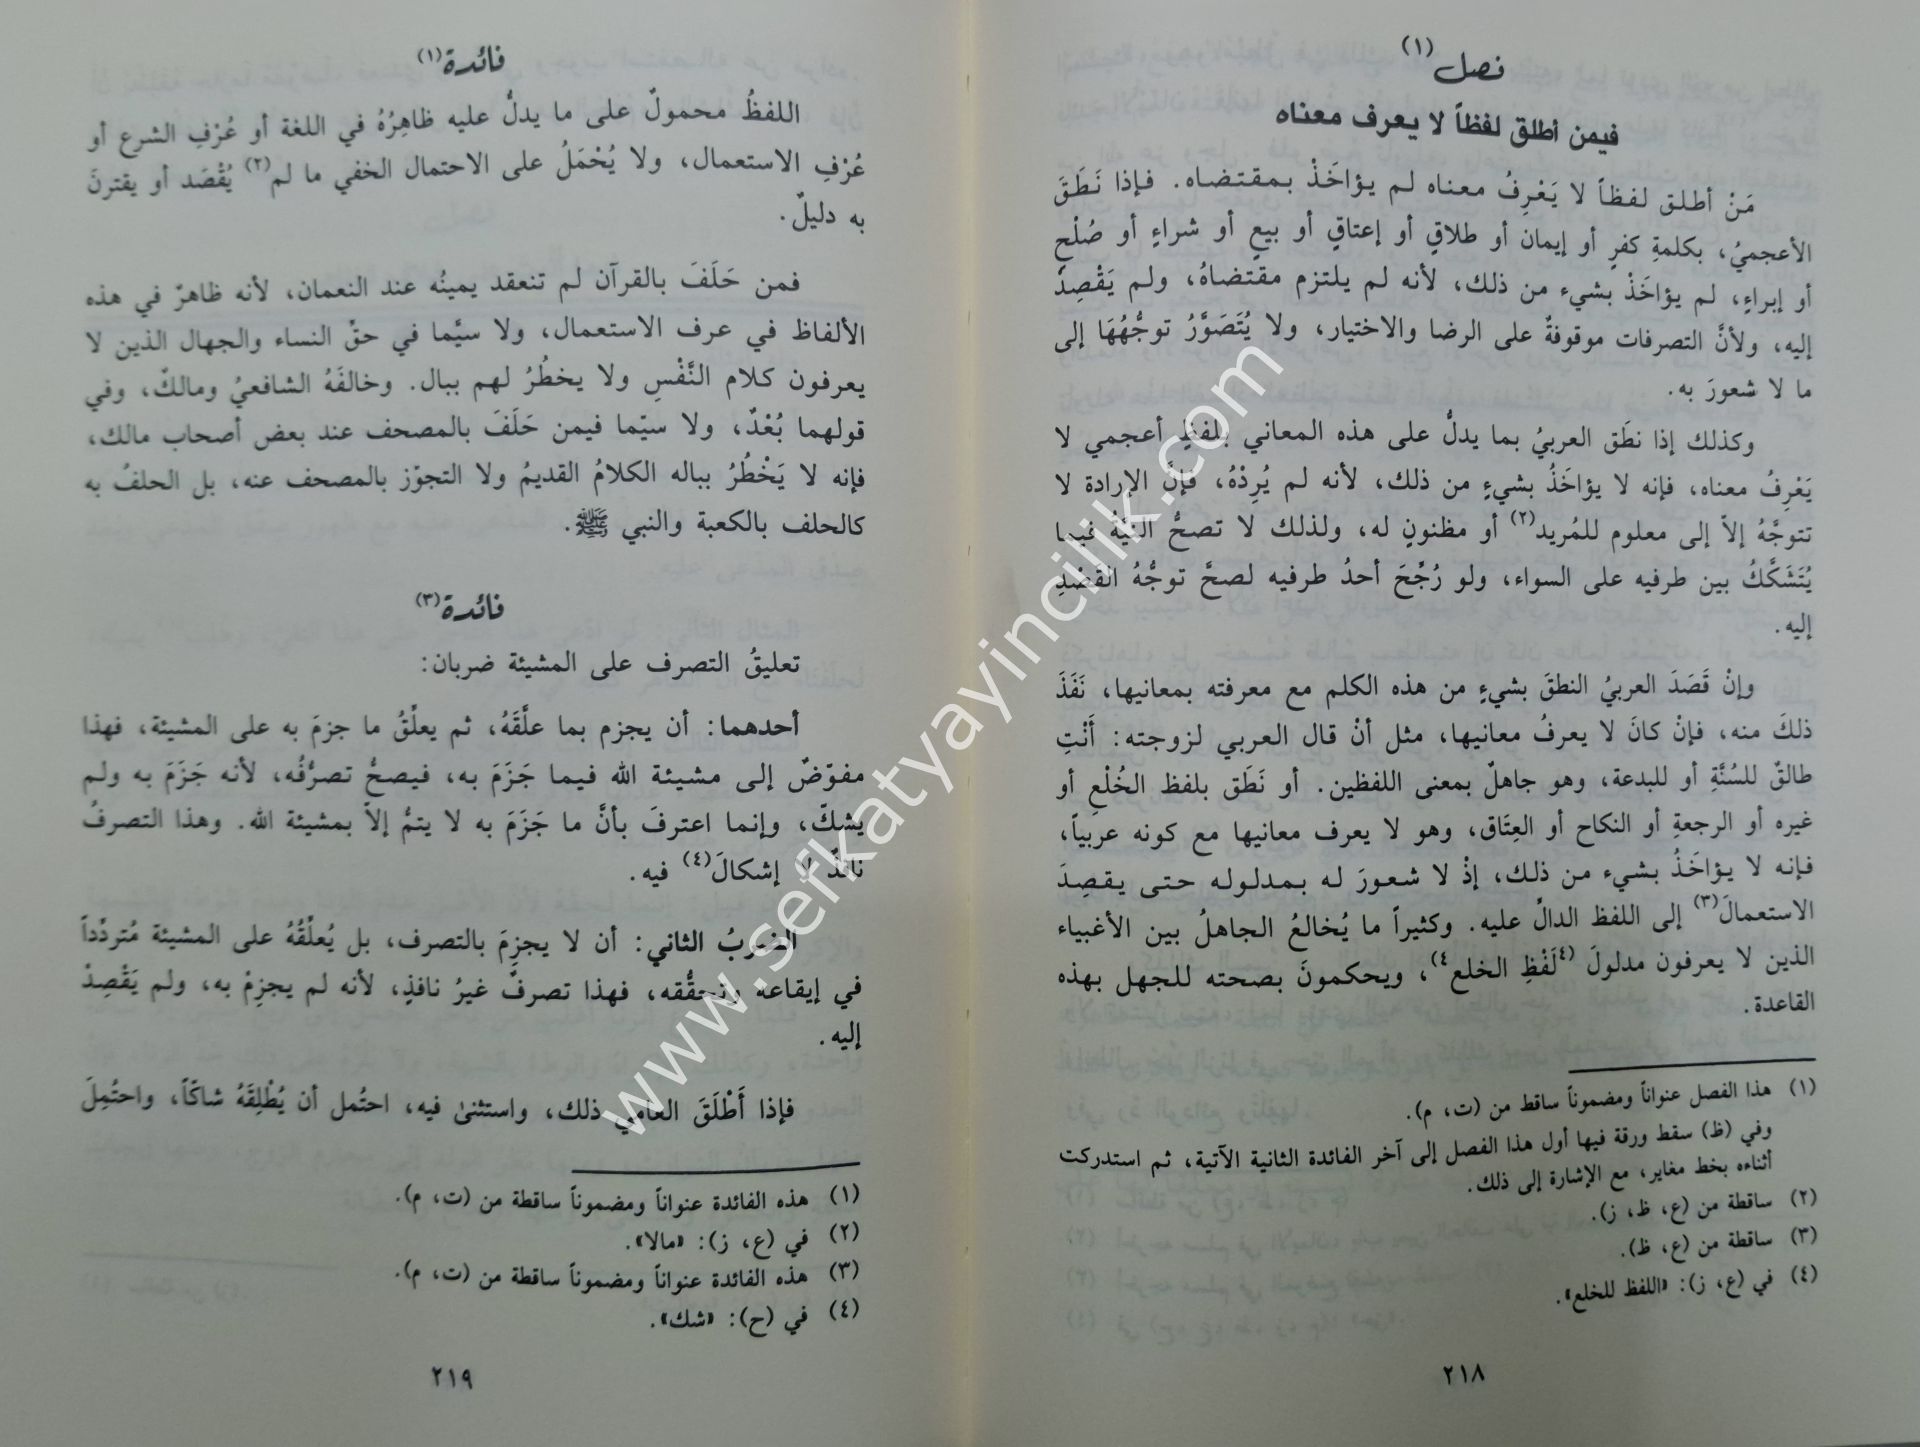 فصل (١)
فيمن أطلق لفظاً لا يعرف معناه
مَنْ أطلق لفظاً لا يَعْرِفُ معناه لم يؤاخَذْ بمقتضاه. فإذا نَطَقَ
الأعجميُ، بكلمةِ كفرٍ أو إيمان أو طلاقٍ أو إعتاقٍ أو بيعٍ أو شراءٍ أو صُلْحٍ
أو إبراءٍ، لم يؤاخَذْ بشيء من ذلك، لأنه لم يلتزم مقتضاهُ، ولم يَقْصِدْ
إليه، ولأنَّ التصرفات موقوفةٌ على الرضا والاختيار، ولا يُتَصَوَّرُ توجُّهُهَا إلى
ما لا شعورَ به.
وكذلك إذا نطَق العربيُ بما يدلُّ على هذه المعاني بلفظٍ أعجمي لا
يَعْرِفُ معناه، فإنه لا يؤاخَذُ بشيءٍ من ذلك، لأنه لم يُرِدْهُ، فإنَّ الإرادة لا
تتوجَّهُ إلاّ إلى معلوم للمُريد(٢) أو مظنونٍ له، ولذلك لا تصحُّ النيَّةُ فيما
يُتَشَكَّكُ بين طرفيه على السواء، ولو رُجِّحَ أحدُ طرفيه لصحَّ توجُّهُ القصْدِ
إليه.
وإنْ قَصَدَ العربيُ النطقَ بشيءٍ من هذه الكلم مع معرفته بمعانيها، نَفَذَ
ذلكَ منه، فإنْ كانَ لا يعرفُ معانيها، مثل أنْ قال العربي لزوجته: أَنْتِ
طالقٌ للسُنَّةِ أو للبدعة، وهو جاهلٌ بمعنى اللفظين. أو نَطَق بلفظ الخُلْعِ أو
غيره أو الرجعةِ أو النكاح أو العِتَاق، وهو لا يعرف معانيها مع كونه عربياً،
فإنه لا يؤاخَذُ بشيء من ذلك، إذْ لا شعورَ له بمدلوله حتى يقصِدَ
الاستعمالَ(٣) إلى اللفظ الدالِّ عليه. وكثيراً ما يُخالعُ الجاهلُ بين الأغبياء
الذين لا يعرفون مدلولَ (٤لَفْظِ الخلع٤)، ويحكمونَ بصحته للجهل بهذه
القاعدة.
(١) هذا الفصل عنواناً ومضموناً ساقط من (ت، م).
وفي (ظ) سقط ورقة فيها أول هذا الفصل إلى آخر الفائدة الثانية الآتية، ثم استدركت
أثناءه بخط مغاير، مع الإشارة إلى ذلك.
(٢) ساقطة من (ع، ظ، ز).
(٣) ساقطة من (ع، ظ).
(٤) في (ع، ز): «اللفظ للخلع».
٢١٨
فائدة (١)
اللفظُ محمولٌ على ما يدلُّ عليه ظاهِرُهُ في اللغة أو عُرْفِ الشرع أو
عُرْفِ الاستعمال، ولا يُحْمَلُ على الاحتمال الخفي ما لم(٢) يُقْصَد أو يقترنَ
به دليلٌ.
فمن حَلَفَ بالقرآن لم تنعقد يمينُه عند النعمان، لأنه ظاهرٌ في هذه
الألفاظ في عرف الاستعمال، ولا سيَّما في حقِّ النساء والجهال الذين لا
يعرفون كلام النَّفْسِ ولا يخطُرُ لهم ببال. وخالفَهُ الشافعيُ ومالكٌ، وفي
قولهما بُعْدٌ، ولا سيّما فيمن حَلَفَ بالمصحف عند بعض أصحاب مالك،
فإنه لا يَخْطُرُ بباله الكلامُ القديمُ ولا التجوّز بالمصحف عنه، بل الحلفُ به
كالحلف بالكعبة والنبي ﷺ.
فائدة (٣)
تعليقُ التصرف على المشيئة ضربان:
أحدهما: أن يجزم بما علَّقَهُ، ثم يعلِّقُ ما جزمَ به على المشيئة، فهذا
مفوّضٌ إلى مشيئة الله فيما جَزَمَ به، فيصحُّ تصرُّفُه، لأنه جَزَمَ به ولم
يشكّ، وإنما اعترفَ بأنَّ ما جَزَمَ به لا يتمُّ إلاّ بمشيئة الله. وهذا التصرفُ
نافذٌ لا إشكالَ(٤) فيه.
الضربُ الثاني: أن لا يجزِمَ بالتصرف، بل يُعلِّقُهُ على المشيئة مُتردِّداً
في إيقاعه وتحقُّقه، فهذا تصرفٌ غيرُ نافذٍ، لأنه لم يجزِمْ به، ولم يَقْصِدْ
إليه.
فإذا أَطْلَقَ العامي ذلك، واستثنىٰ فيه، احتُمل أن يُطْلِقَهُ شاكّاً، واحتُمِلَ
(١) هذه الفائدة عنواناً ومضموناً ساقطة من (ت، م).
(٢) في (ع، ز): «مالا».
(٣) هذه الفائدة عنواناً ومضموناً ساقطة من (ت، م).
(٤) في (ح): «شك».
٢١٩
www.sefkatyayincilik.com